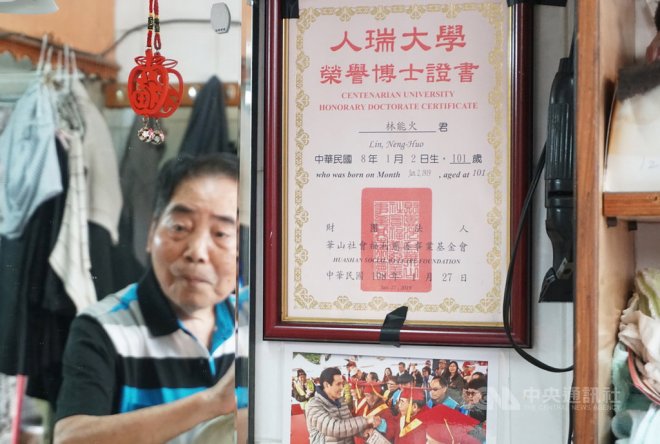 人瑞大學
榮譽博士證書
CENTENARIAN UNIVERSITY
HONORARY DOCTORATE CERTIFICATE
林能火 君
Lin, Neng-Huo
中華民國 8年1月2日生，101歲
who was born on Month Jan.2,1919, aged at 101
財團法人
華山社會福利慈善事業基金會
HUASHAN SOCIAL WELFARE FOUNDATION
中華民國 108年 1月27日
Jan. 27, 2019
中央通訊社
THE CENTRAL NEWS AGENCY